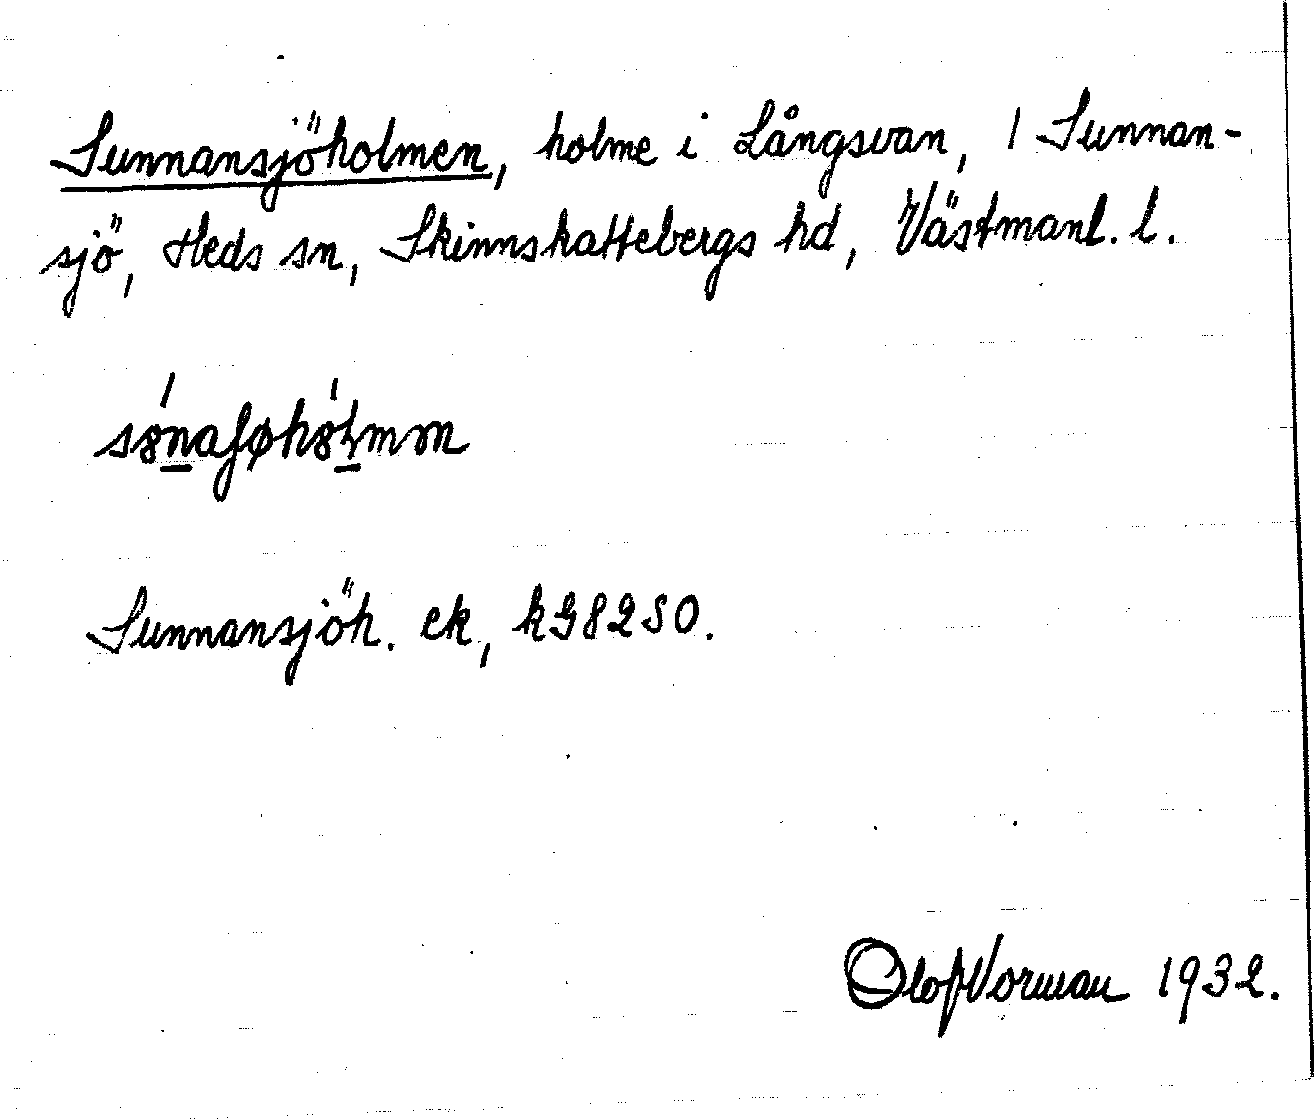 Sunnansjöholmen, holme i Långsvan, 1 Sunnan-
sjö, Heds sn, Skinnskattebergs hd, Västmanl. l.
Sunnansjöh. ek, kG8250.
Olof Norman 1932.